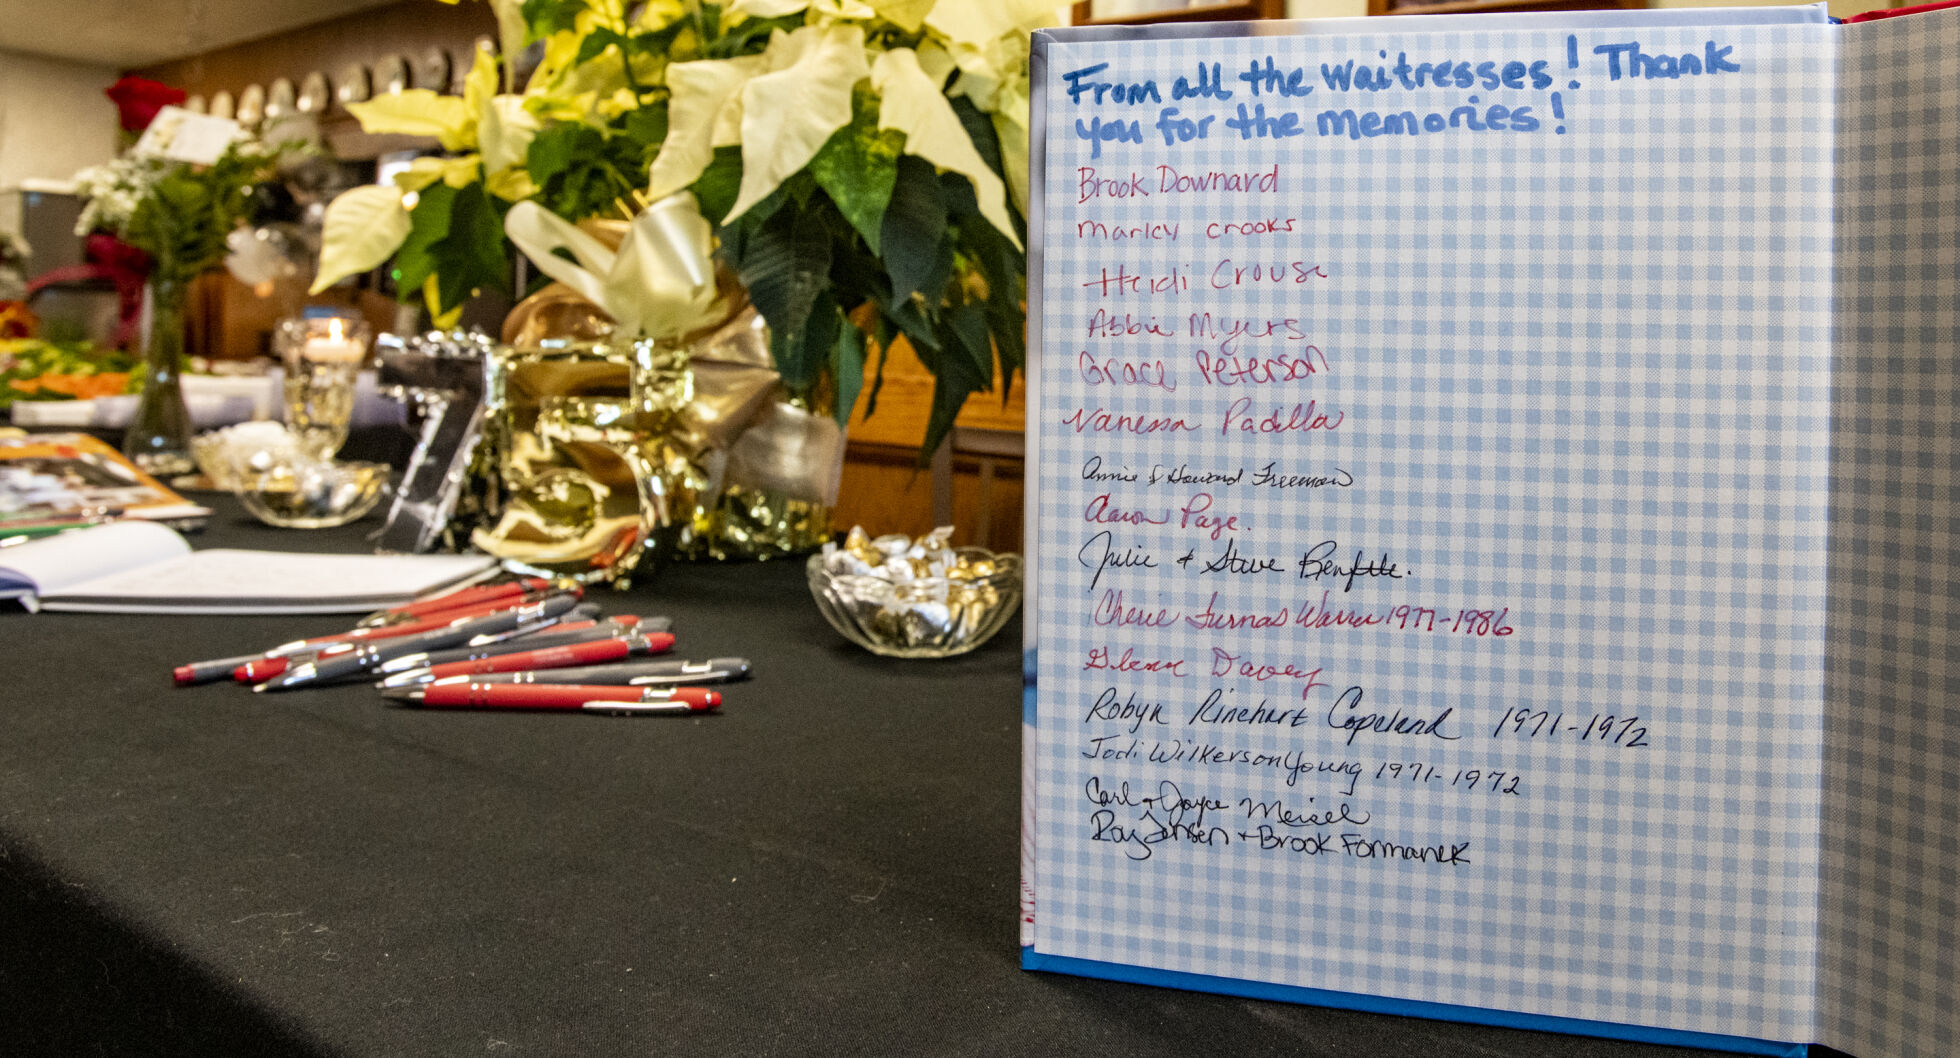 From all the waitresses! Thank
you for the memories!
Brook Downard
Marley Crooks
Heidi Crouse
Abbie Myers
Grace Peterson
Vanessa Padilla
Annie & Howard Freeman
Aaron Page.
Julie + Steve
Cherie Furnas Warren 1977-1986
Glenn Davey
Robyn Rinehart Copeland 1971-1972
Jodi Wilkerson Young 1971-1972
Carl + Joyce Meisel
Ray Jensen + Brook Formanek
75